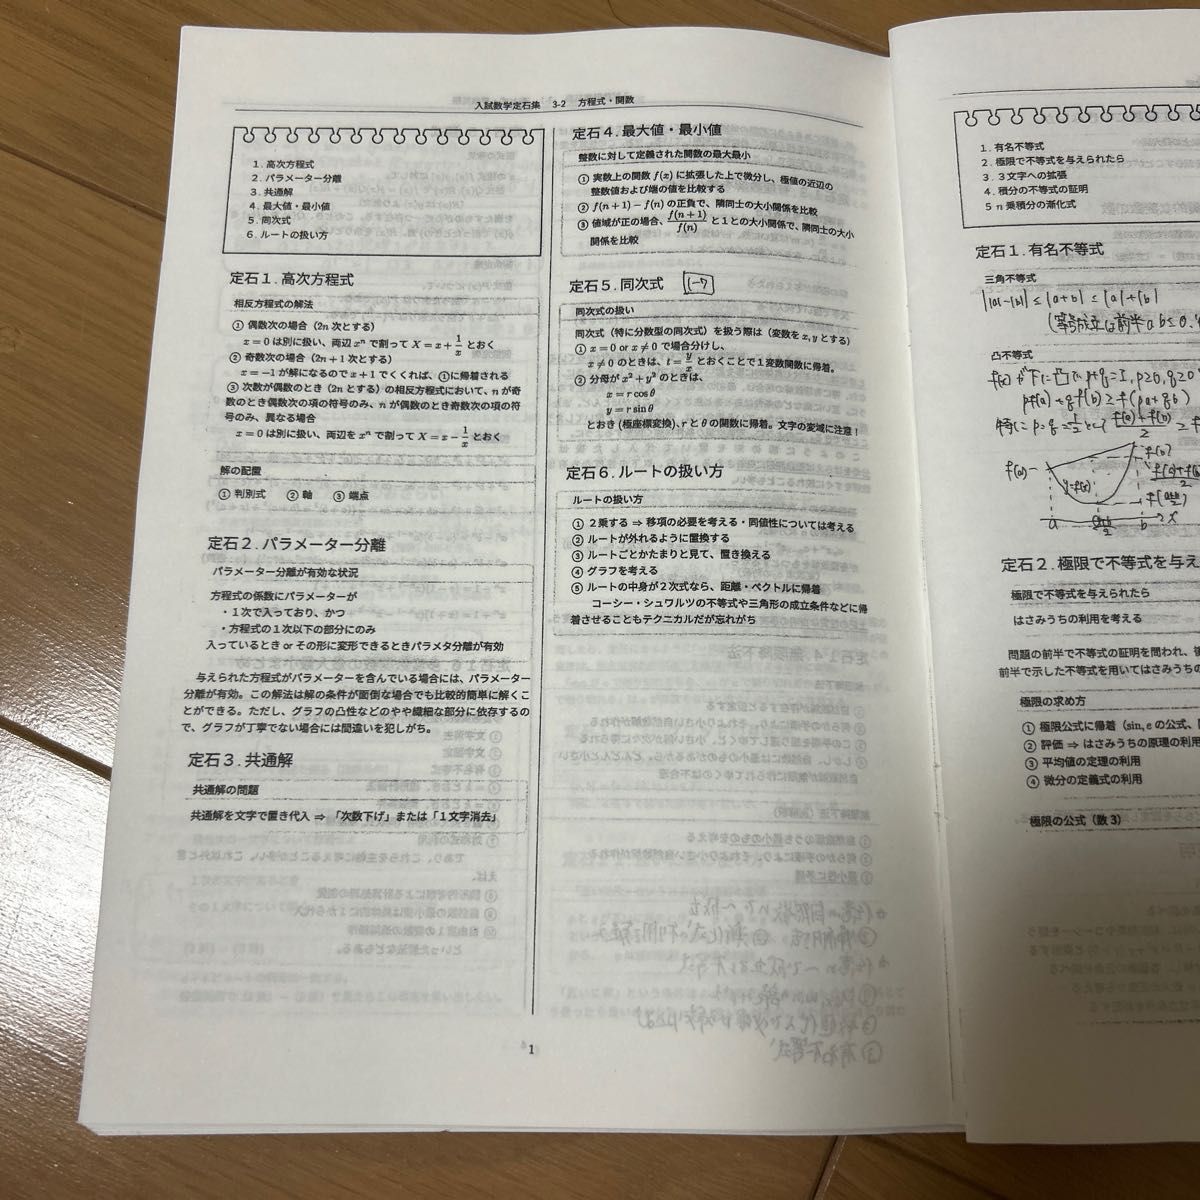 入試数学定石集 3-2 方程式・関数
1. 高次方程式
2. パラメーター分離
3. 共通解
4. 最大値・最小値
5. 同次式
6. ルートの扱い方
定石1. 高次方程式
相反方程式の解法
① 偶数次の場合（2n 次とする）
x = 0 は別に扱い、両辺 xⁿ で割って X = x + 1/x とおく
② 奇数次の場合（2n + 1 次とする）
x = −1 が解になるので x + 1 でくくれば、①に帰着される
③ 次数が偶数のとき（2n とする）の相反方程式において、n が奇
数のとき偶数次の項の符号のみ、n が偶数のとき奇数次の項の符
号のみ、異なる場合
x = 0 は別に扱い、両辺を xⁿ で割って X = x − 1/x とおく
解の配置
① 判別式 ② 軸 ③ 端点
定石2. パラメーター分離
パラメーター分離が有効な状況
方程式の係数にパラメーターが
・1次で入っており、かつ
・方程式の1次以下の部分にのみ
入っているとき or その形に変形できるときパラメタ分離が有効
与えられた方程式がパラメーターを含んでいる場合には、パラメーター
分離が有効。この解法は解の条件が面倒な場合でも比較的簡単に解くこ
とができる。ただし、グラフの凸性などのやや繊細な部分に依存するの
で、グラフが丁寧でない場合には間違いを犯しがち。
定石3. 共通解
共通解の問題
共通解を文字で置き代入 ⇒ 「次数下げ」または「1文字消去」
定石4. 最大値・最小値
整数に対して定義された関数の最大最小
① 実数上の関数 f(x) に拡張した上で微分し、極値の近辺の
整数値および端の値を比較する
② f(n + 1) − f(n) の正負で、隣同士の大小関係を比較
③ 値域が正の場合、f(n + 1)/f(n) と1との大小関係で、隣同士の大小
関係を比較
定石5. 同次式 1-7
同次式の扱い
同次式（特に分数型の同次式）を扱う際は（変数を x, y とする）
① x = 0 or x ≠ 0 で場合分けし、
x ≠ 0 のときは、t = y/x とおくことで1変数関数に帰着。
② 分母が x² + y² のときは、
x = r cos θ
y = r sin θ
とおき（極座標変換）、r と θ の関数に帰着。文字の変域に注意！
定石6. ルートの扱い方
ルートの扱い方
① 2乗する ⇒ 移項の必要を考える・同値性については考える
② ルートが外れるように置換する
③ ルートごとかたまりと見て、置き換える
④ グラフを考える
⑤ ルートの中身が2次式なら、距離・ベクトルに帰着
コーシー・シュワルツの不等式や三角形の成立条件などに帰
着させることもテクニカルだが忘れがち
1
1. 有名不等式
2. 極限で不等式を与えられたら
3. 3文字への拡張
4. 積分の不等式の証明
5 n 乗積分の漸化式
定石1. 有名不等式
三角不等式
||a|-|b|| ≤ |a+b| ≤ |a|+|b|
(等号成立は前半 ab ≤ 0,
凸不等式
f(x) が下に凸で, p+q=1, p≥0, q≥0
pf(a)+qf(b) ≥ f(pa+qb)
特に p=q=1/2として (f(a)+f(b))/2 ≥ f
f(a)
y=f(x)
f(b)
f(a)+f(b)/2
f(a+b/2)
a
a+b/2
b
x
定石2. 極限で不等式を与え
極限で不等式を与えられたら
はさみうちの利用を考える
問題の前半で不等式の証明を問われ、
前半で示した不等式を用いてはさみうちの
極限の求め方
① 極限公式に帰着（sin, e の公式、
② 評価 ⇒ はさみうちの原理の利用
③ 平均値の定理の利用
④ 微分の定義式の利用
極限の公式（数3）